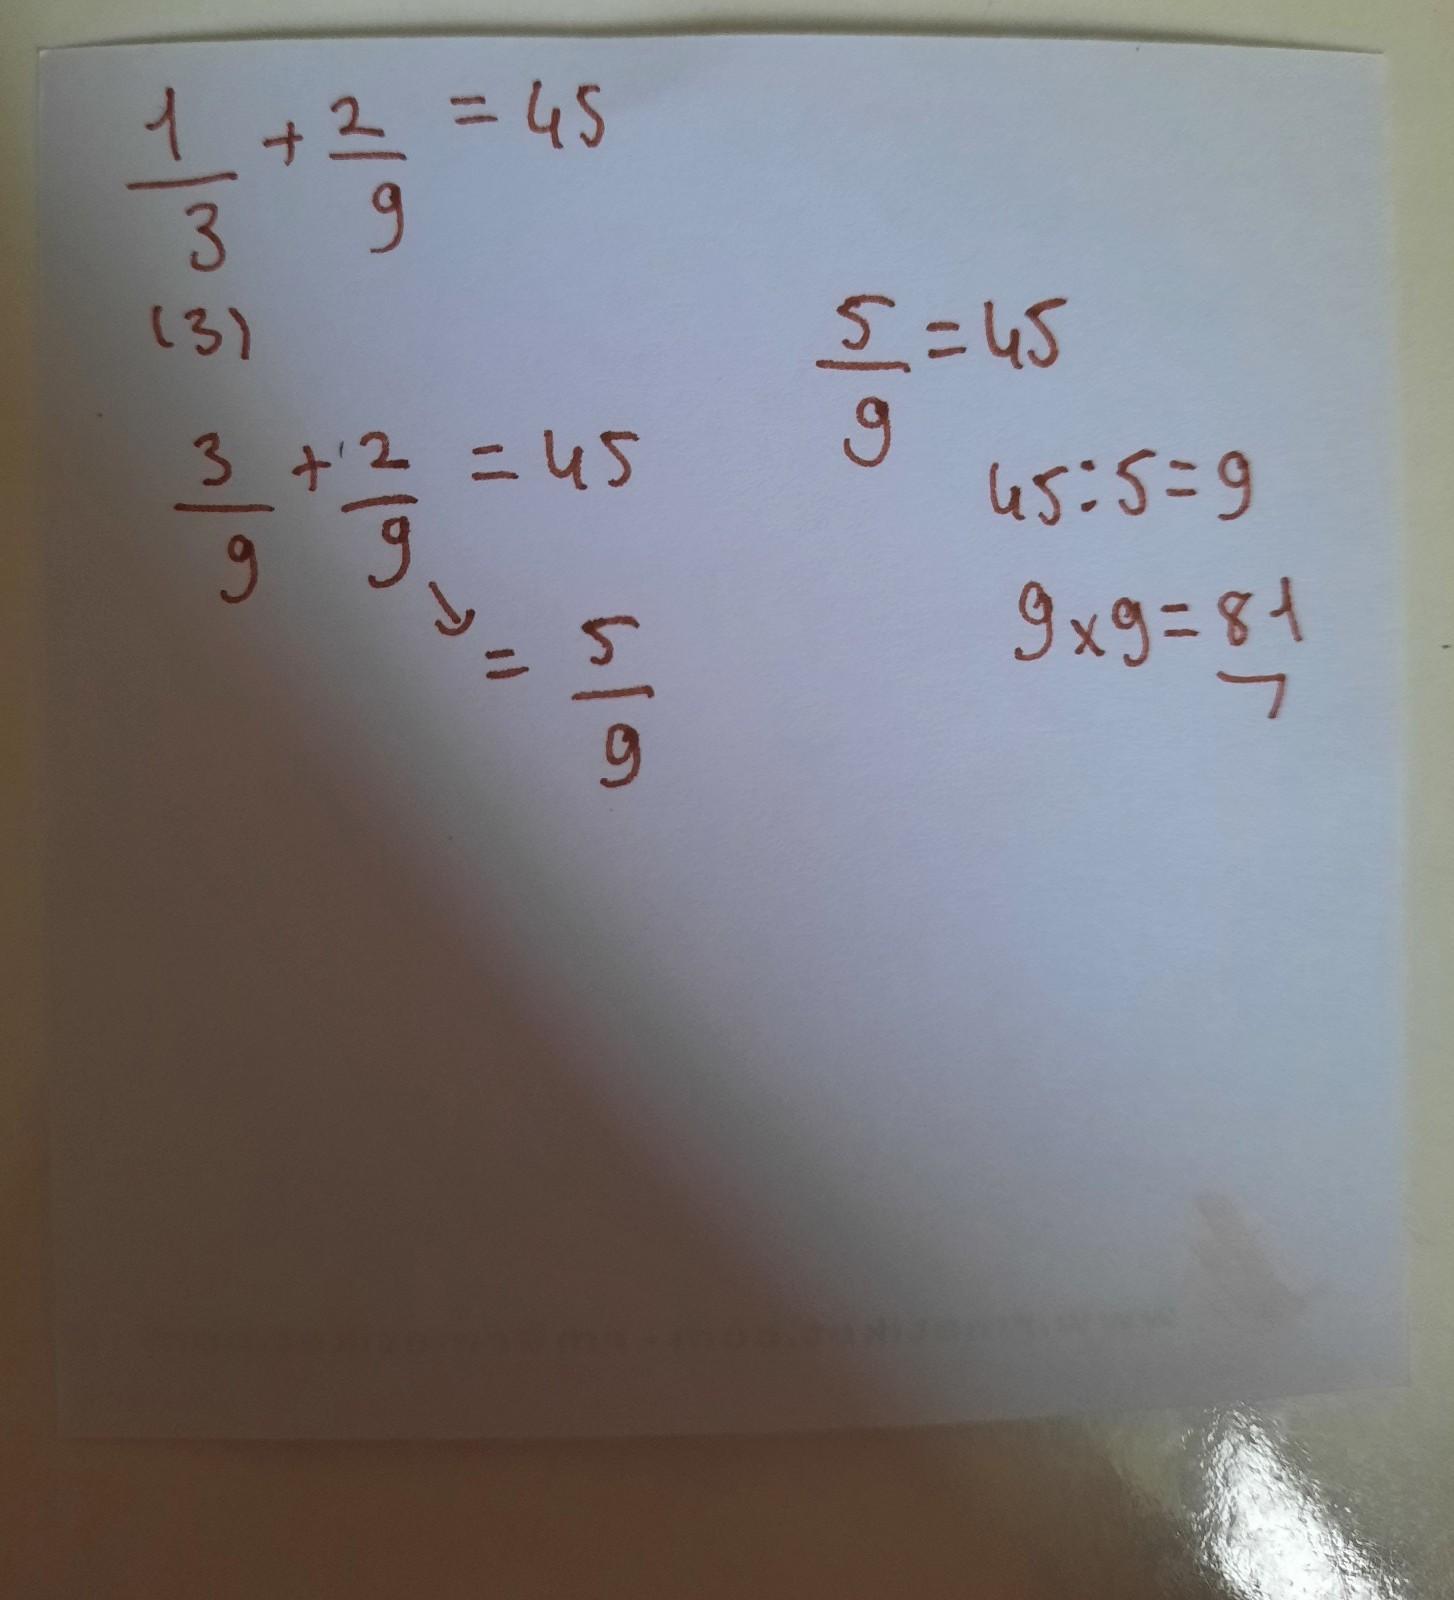 1/3 + 2/9 = 45
(3)
3/9 + 2/9 = 45
= 5/9
5/9 = 45
45:5=9
9x9=81